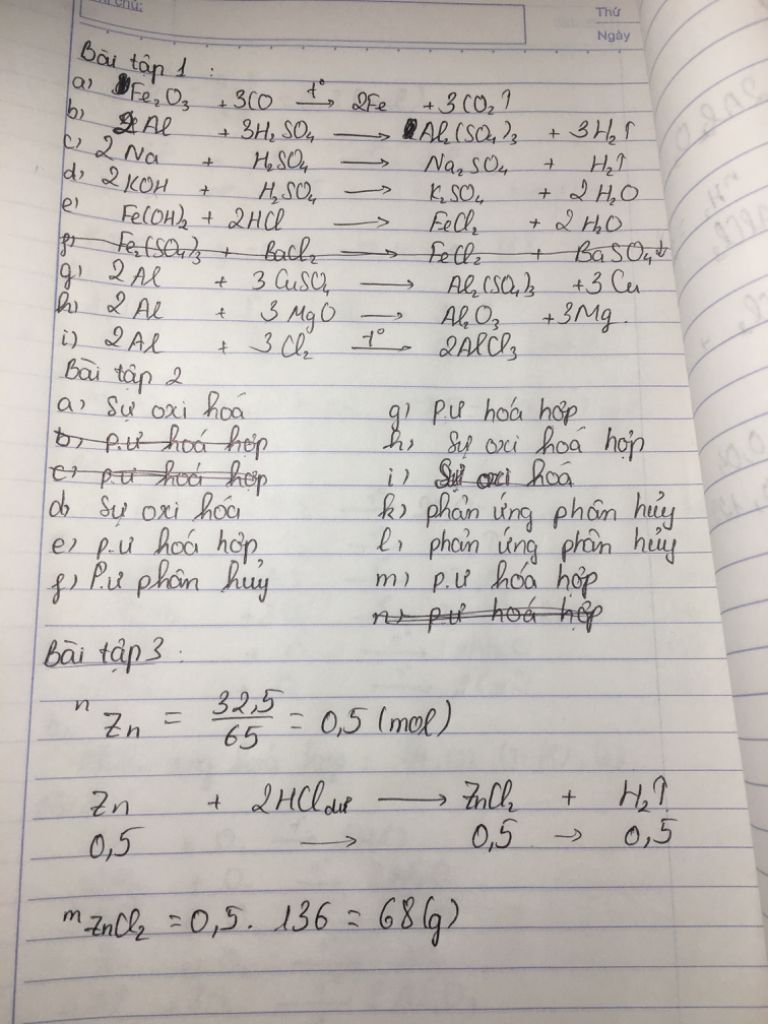 chú:
Thứ
Ngày
Bài tập 1 :
a) Fe₂O₃ + 3CO —t°→ 2Fe + 3CO₂↑
b) 2Al + 3H₂SO₄ → Al₂(SO₄)₃ + 3H₂↑
c) 2Na + H₂SO₄ → Na₂SO₄ + H₂↑
d) 2KOH + H₂SO₄ → K₂SO₄ + 2H₂O
e) Fe(OH)₂ + 2HCl → FeCl₂ + 2H₂O
f) Fe₂(SO₄)₃ + BaCl₂ → FeCl₂ + BaSO₄↓
g) 2Al + 3CuSO₄ → Al₂(SO₄)₃ + 3Cu
h) 2Al + 3MgO → Al₂O₃ + 3Mg.
i) 2Al + 3Cl₂ —t°→ 2AlCl₃
Bài tập 2
a) Sự oxi hoá
b) p.ư hoá hợp
c) p.ư hoá hợp
d) Sự oxi hóa
e) p.ư hoá hợp
f) P.ư phân hủy
g) p.ư hoá hợp
h) Sự oxi hoá hợp
i) Sự oxi hoá
k) phản ứng phân hủy
l) phản ứng phân hủy
m) p.ư hóa hợp
n) p.ư hoá hợp
Bài tập 3 :
n Zn = 32,5/65 = 0,5 (mol)
Zn + 2HCl dư → ZnCl₂ + H₂↑
0,5 → 0,5 → 0,5
m ZnCl₂ = 0,5 . 136 = 68(g)